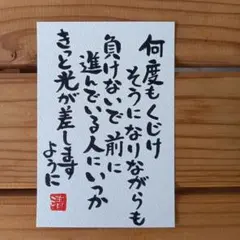 何度もくじけ
そうになりながらも
負けないで前に
進んでいる人にいつか
きっと光が差します
ように
清